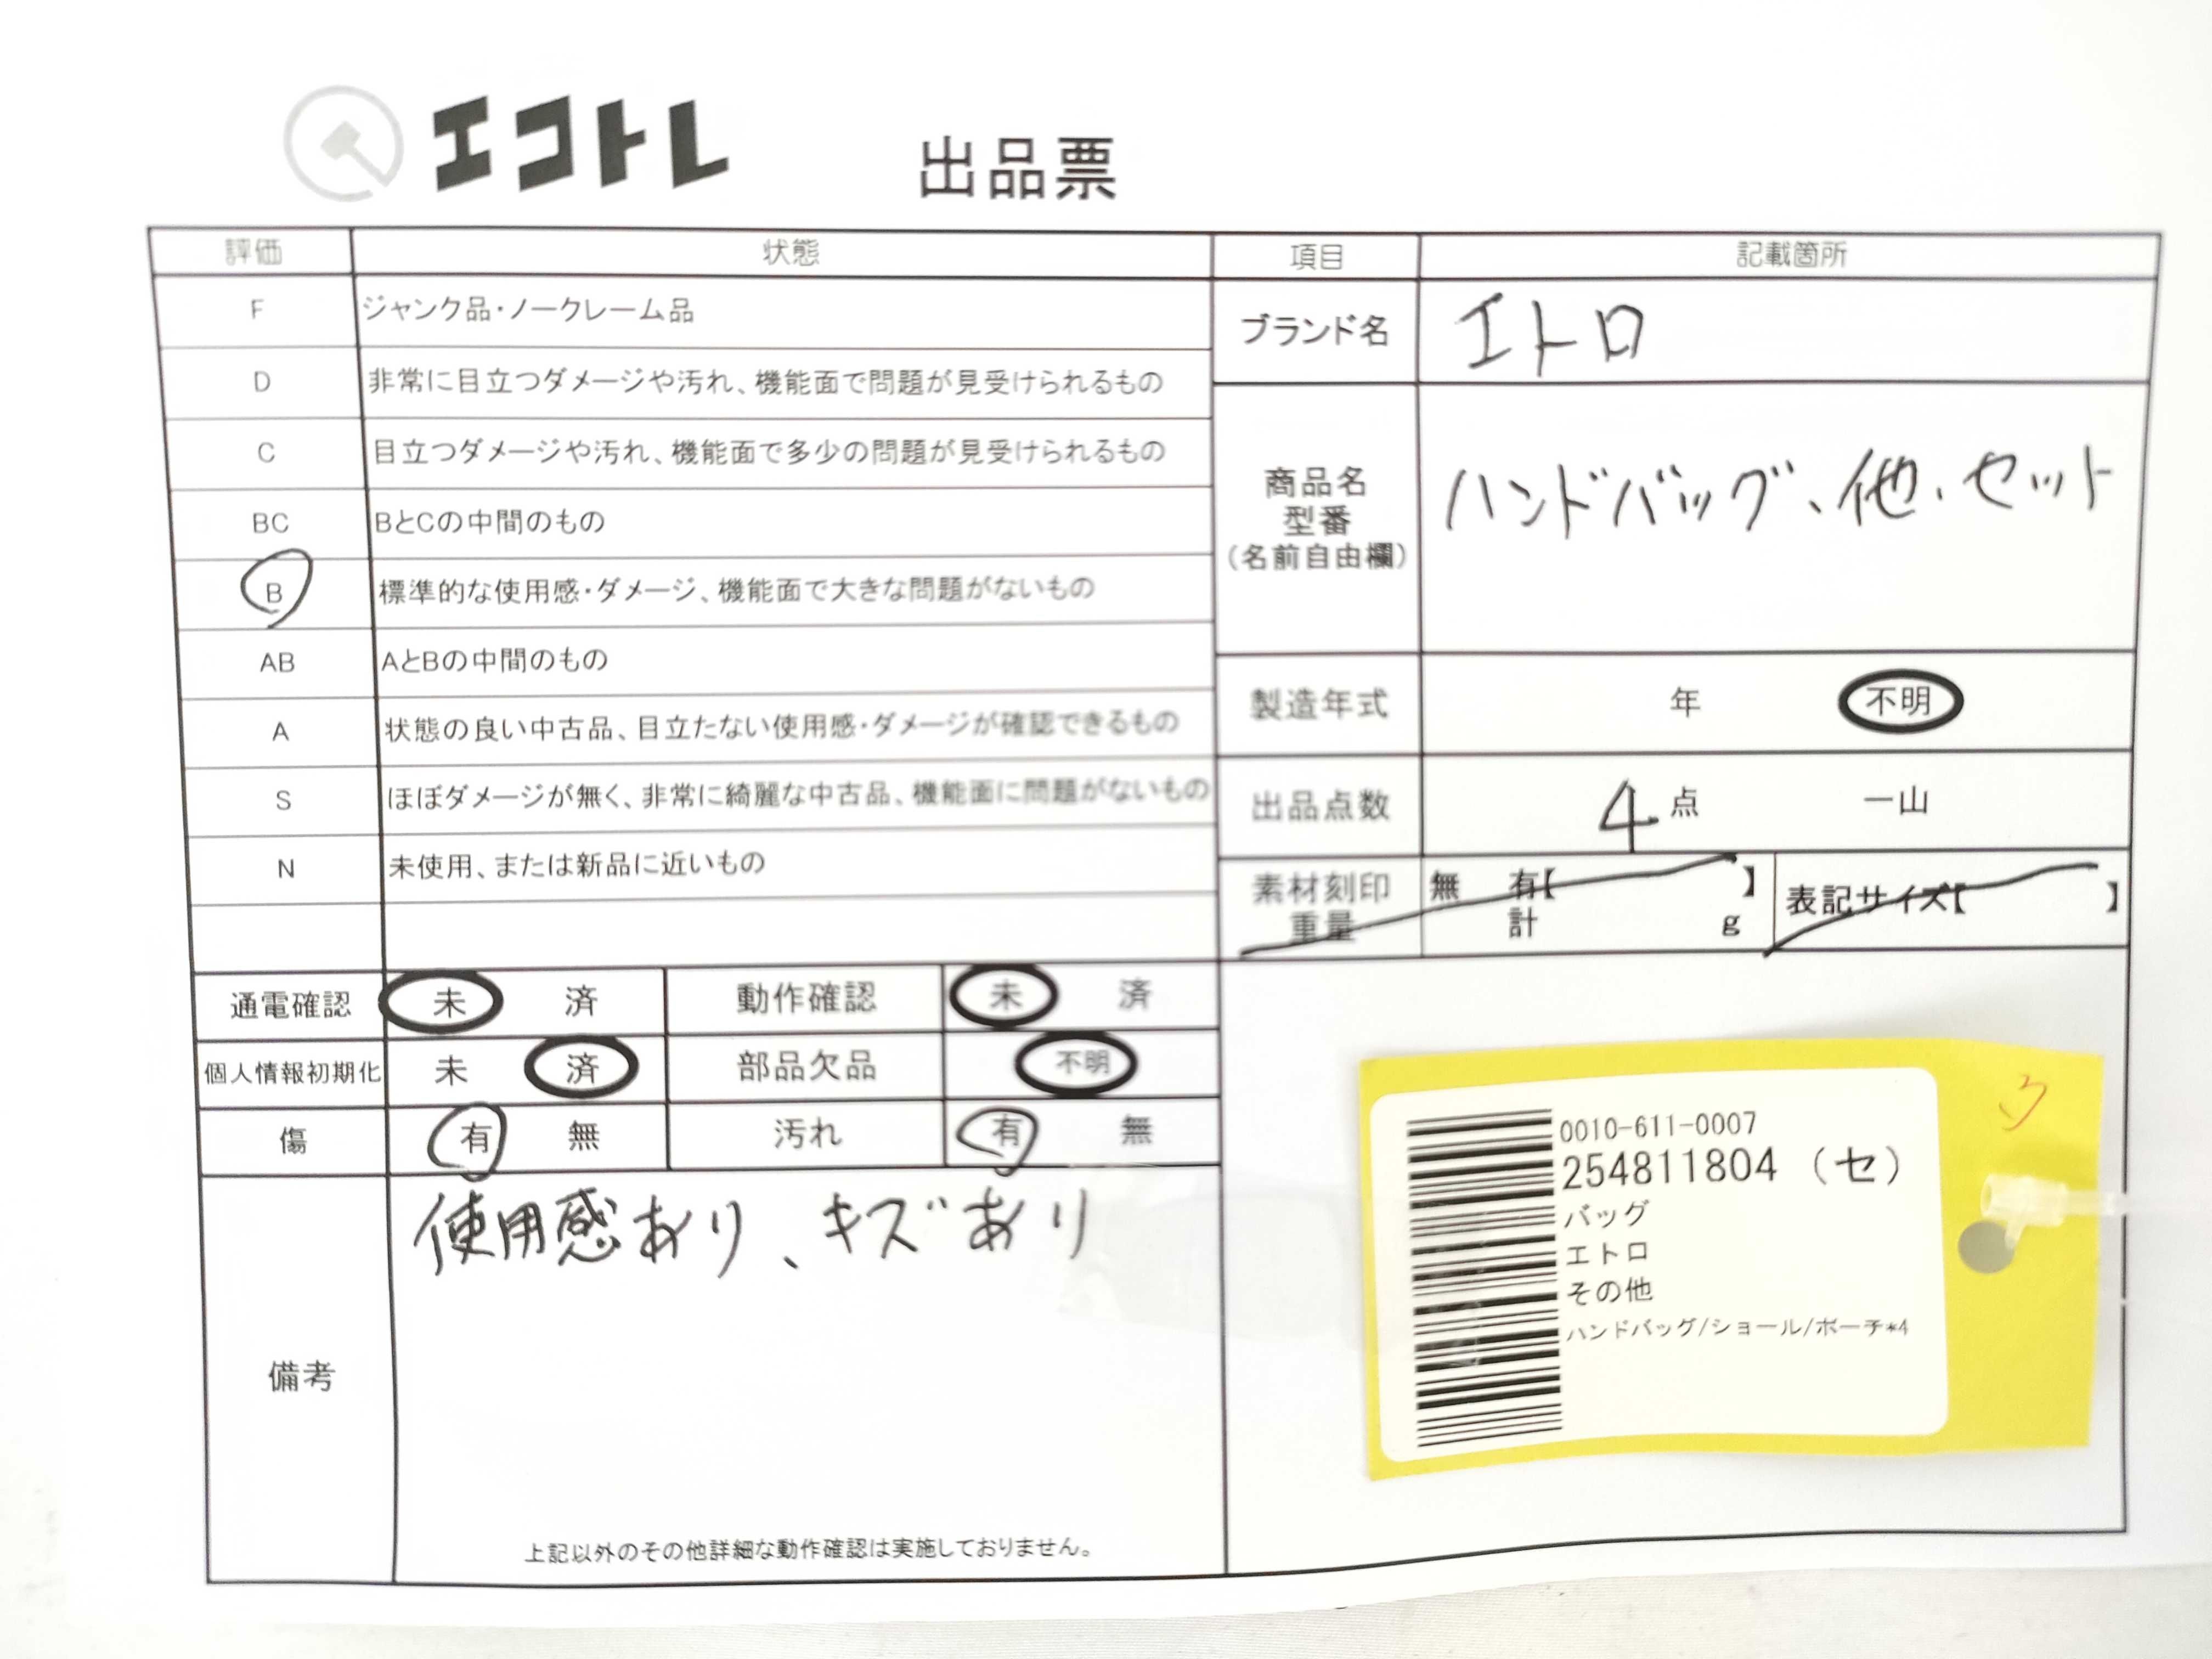 エコトレ 出品票
評価 状態 項目 記載箇所
F ジャンク品・ノークレーム品
D 非常に目立つダメージや汚れ、機能面で問題が見受けられるもの
C 目立つダメージや汚れ、機能面で多少の問題が見受けられるもの
BC BとCの中間のもの
B 標準的な使用感・ダメージ、機能面で大きな問題がないもの
AB AとBの中間のもの
A 状態の良い中古品、目立たない使用感・ダメージが確認できるもの
S ほぼダメージが無く、非常に綺麗な中古品、機能面に問題がないもの
N 未使用、または新品に近いもの
ブランド名 エトロ
商品名
型番
(名前自由欄)
ハンドバッグ、他、セット
製造年式 年 不明
出品点数 4点 一山
素材刻印 無 有【 】 表記サイズ【 】
重量 計 g
通電確認 未 済 動作確認 未 済
個人情報初期化 未 済 部品欠品 不明
傷 有 無 汚れ 有 無
備考 使用感あり、キズあり
上記以外のその他詳細な動作確認は実施しておりません。
0010-611-0007
254811804 (セ)
バッグ
エトロ
その他
ハンドバッグ/ショール/ポーチ*4